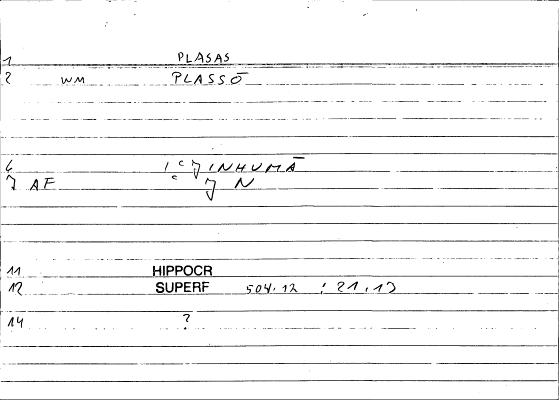 1 PLASAS
2 WM PLASSŌ
6 1 c J INHUMĀ
7 AF c J N
11 HIPPOCR
12 SUPERF 504.12 : 21.13
14 ?